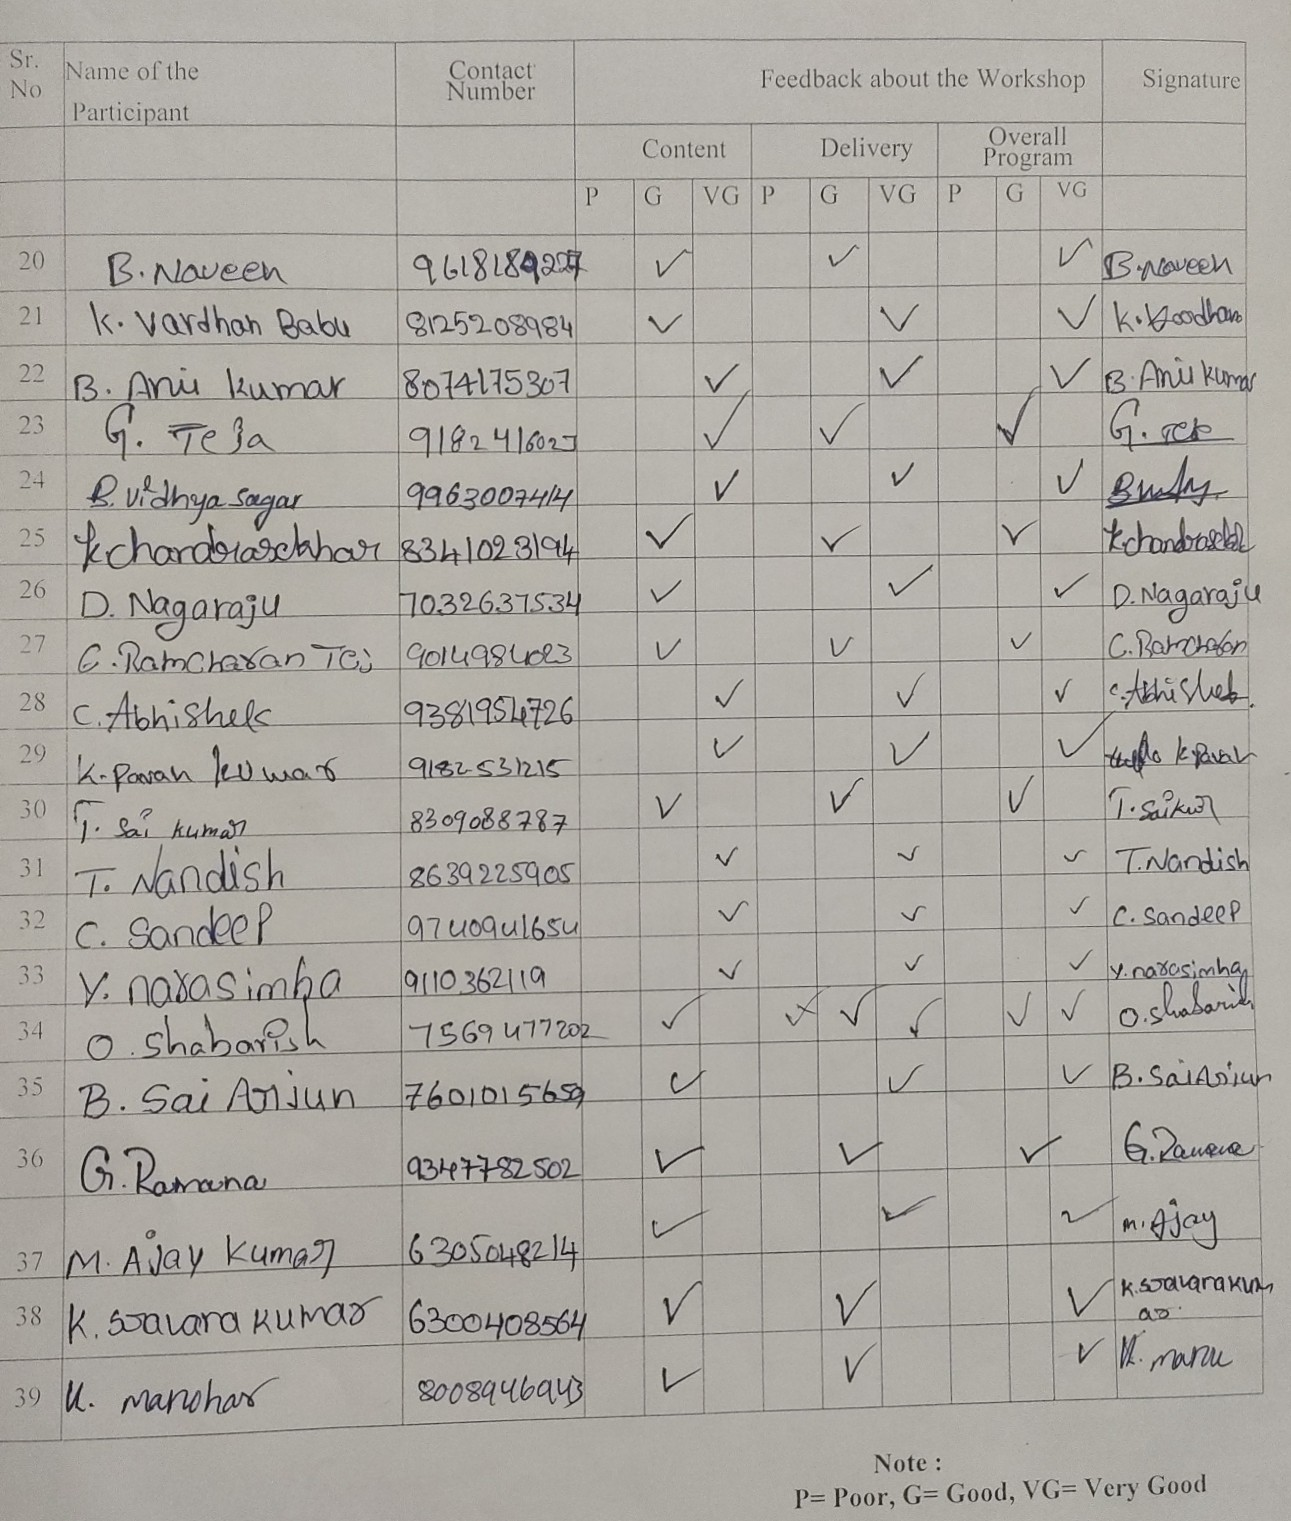 Sr. No Name of the Participant Contact Number Feedback about the Workshop Signature
Content Delivery Overall Program
P G VG P G VG P G VG
20 B. Naveen ✓ ✓ ✓ B. naveen
21 K. Vardhan Babu 8125208984 ✓ ✓ ✓ K.
22 B. Anil kumar 8074175307 ✓ ✓ ✓ B. Anil kumar
23 G. Teja ✓ ✓ ✓ G.
24 B. Vidhya sagar 9963007414 ✓ ✓ ✓
25 K chandrasekhar 8341023194 ✓ ✓ ✓
26 D. Nagaraju 7032637534 ✓ ✓ ✓ D. Nagaraju
27 C. Ramcharan Tej 9014984023 ✓ ✓ ✓ C. Ramcharan
28 C. Abhishek 9381954726 ✓ ✓ ✓ C. Abhishek.
29 K. Pavan kumar 9182531215 ✓ ✓ ✓ K Pavan
30 T. Sai kumar 8309088787 ✓ ✓ ✓ T.
31 T. Nandish 8639225905 ✓ ✓ ✓ T. Nandish
32 C. Sandeep 9740941654 ✓ ✓ ✓ C. Sandeep
33 Y. narasimha 9110362119 ✓ ✓ ✓ Y. narasimha
34 O. Shabarish 7569477202 ✓ ✓ ✓ ✓ ✓ O. Shabarish
35 B. Sai Arjun 7601015659 ✓ ✓ ✓ B. Sai Arjun
36 G. Ramana 9347782502 ✓ ✓ ✓ G. Ramana
37 M. Ajay Kumar 6305048214 ✓ ✓ ✓ M. Ajay
38 K. Swavara kumar 6300408564 ✓ ✓ ✓ K. Swavara kum
ar.
39 K. manohar 8008946943 ✓ ✓ ✓ K. manu
Note :
P= Poor, G= Good, VG= Very Good